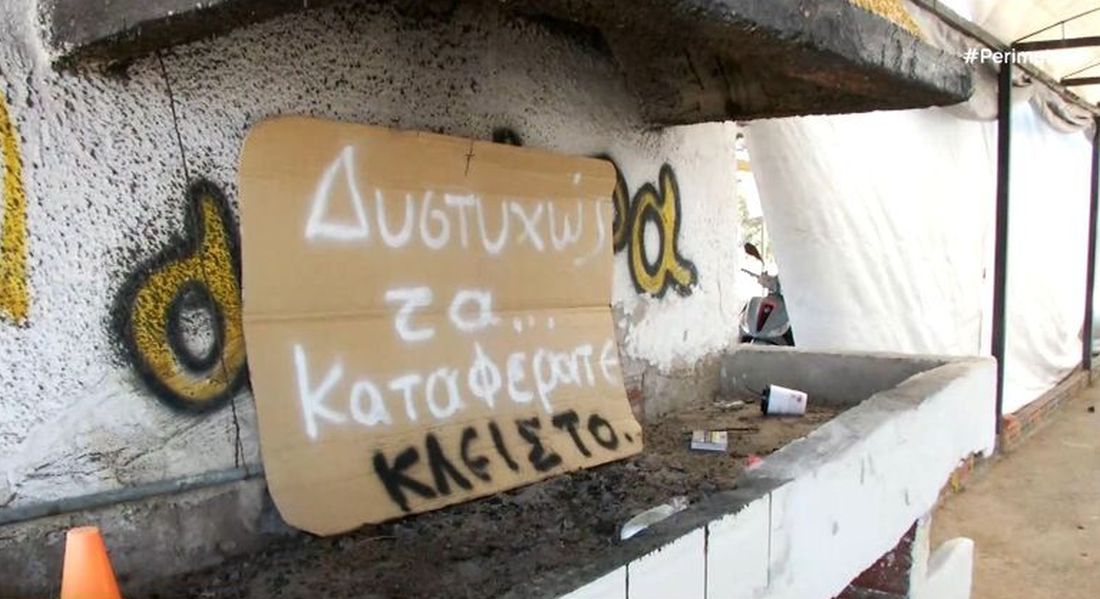 #Perim
Δυστυχώς
τα...
καταφερατε
ΚΛΕΙΣΤΟ.